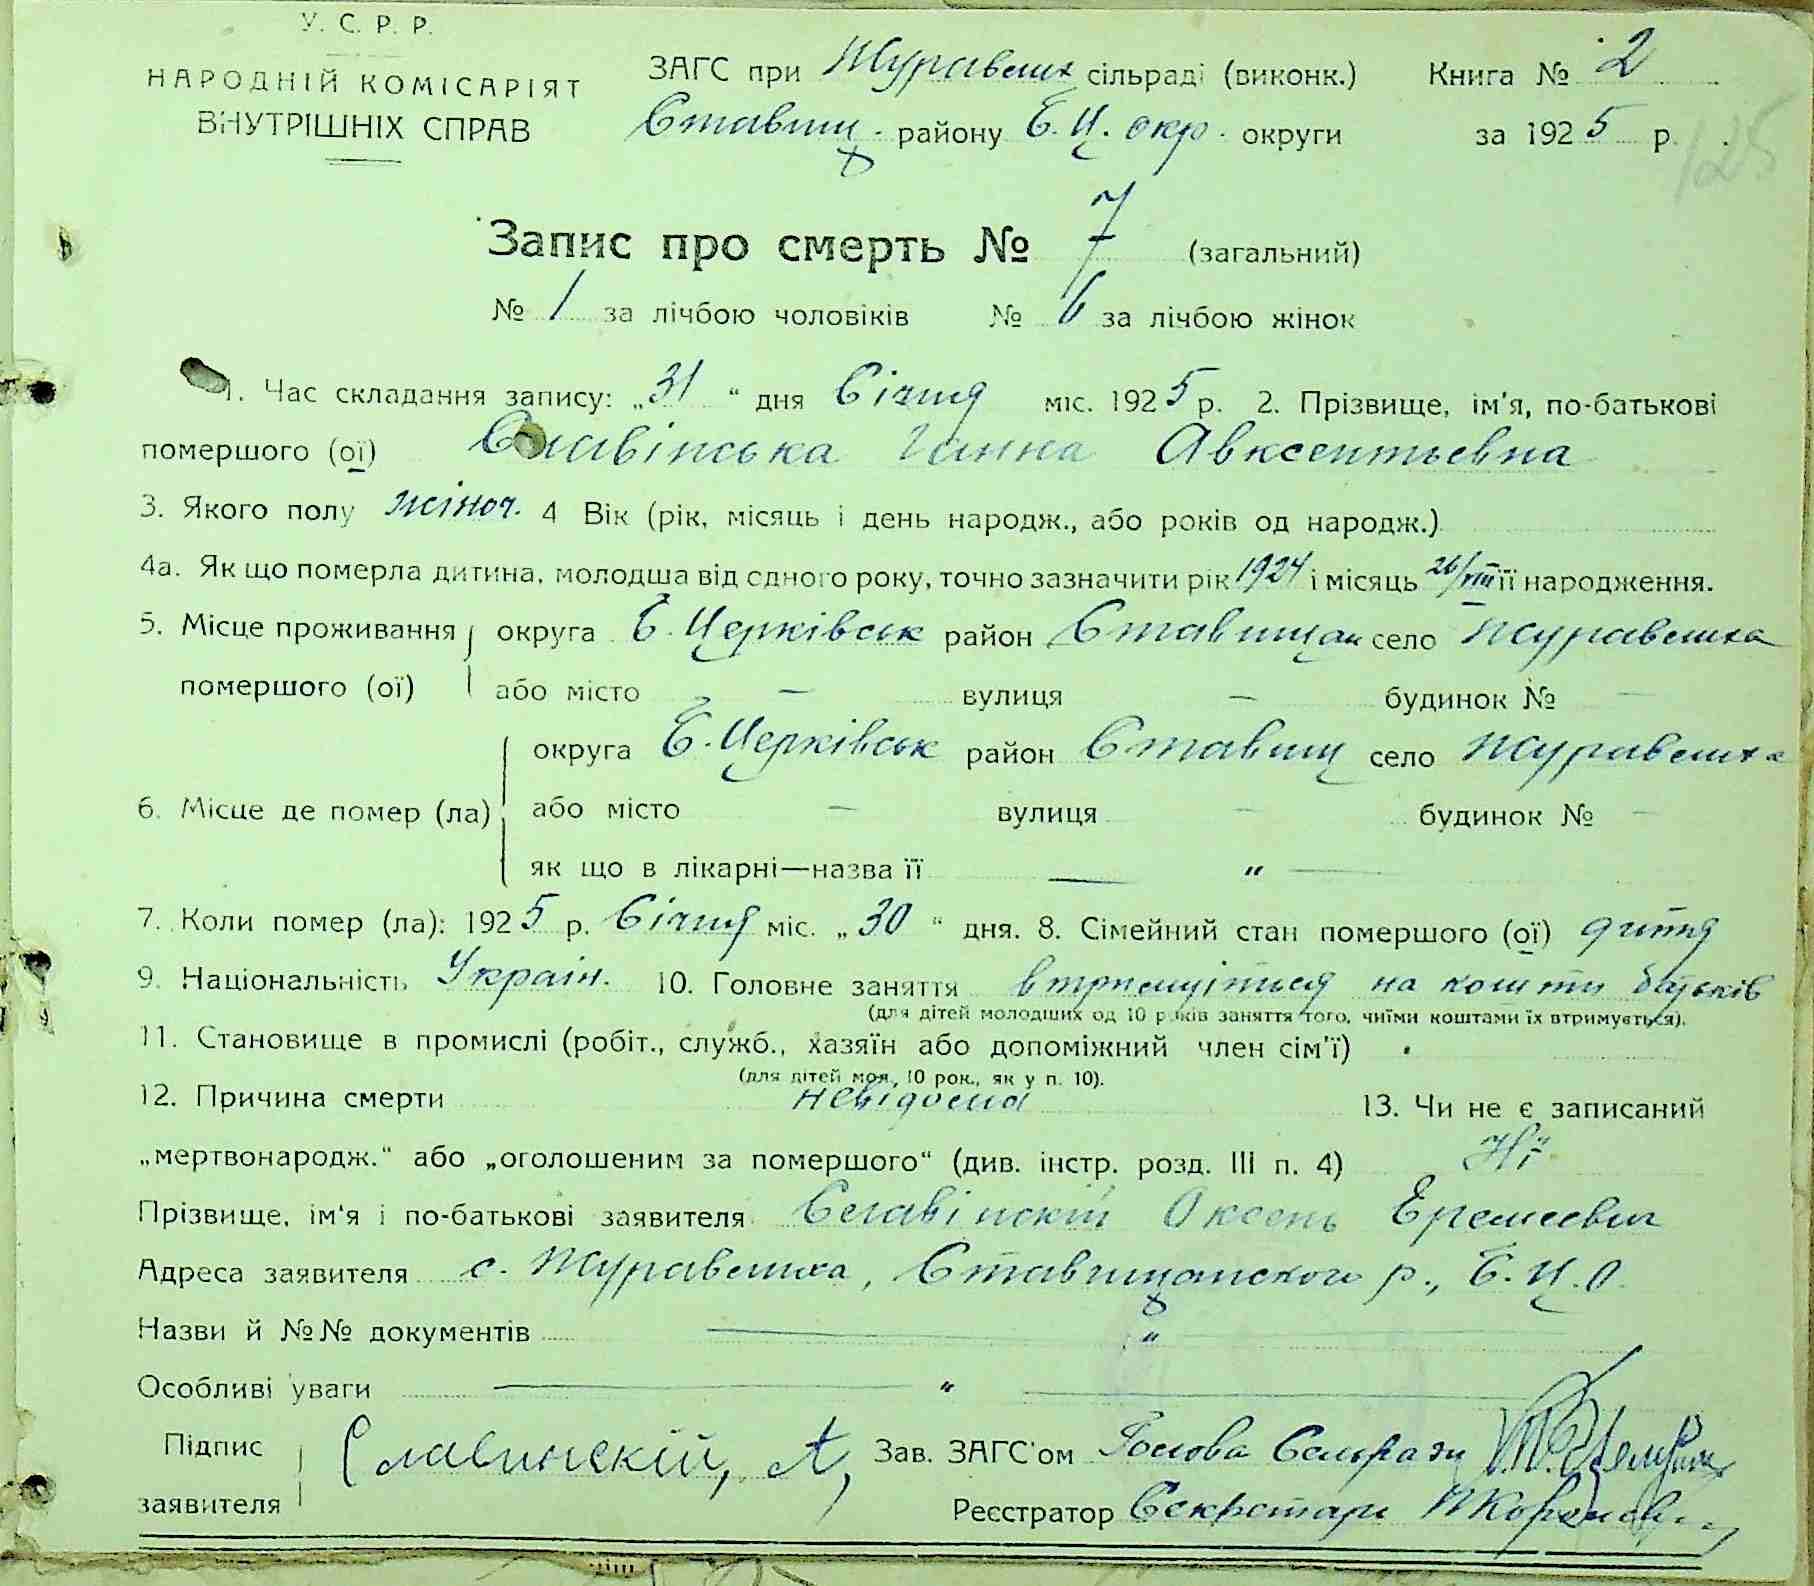 У. С. Р. Р.
НАРОДНІЙ КОМІСАРІЯТ
ВНУТРІШНІХ СПРАВ
ЗАГС при Журавлих сільраді (виконк.) Книга № 2
Ставищ. району Б.Ц. окр. округи за 1925 р.
125
Запис про смерть № 7 (загальний)
№ 1 за лічбою чоловіків № 6 за лічбою жінок
1. Час складання запису: „31“ дня Січня міс. 1925 р. 2. Прізвище, ім'я, по-батькові
помершого (ої) Славінська Ганна Авксентьевна
3. Якого полу жіноч. 4 Вік (рік, місяць і день народж., або років од народж.)
4а. Як що померла дитина, молодша від одного року, точно зазначити рік 1924 і місяць 26/VIII її народження.
5. Місце проживання округа Б. Церківськ район Ставищан село Журавлиха
помершого (ої) або місто — вулиця — будинок № —
округа Б. Церківськ район Ставищ село Журавлиха
6. Місце де помер (ла) або місто — вулиця — будинок № —
як що в лікарні—назва її — „ —
7. Коли помер (ла): 1925 р. Січня міс. „30“ дня. 8. Сімейний стан помершого (ої) дитя
9. Національність Україн. 10. Головне заняття втримуіться на кошти батьків
(для дітей молодших од 10 років заняття того, чиїми коштами їх втримується).
11. Становище в промислі (робіт., служб., хазяїн або допоміжний член сім'ї)
(для дітей мол, 10 рок., як у п. 10).
12. Причина смерти невідома 13. Чи не є записаний
„мертвонародж.“ або „оголошеним за помершого“ (див. інстр. розд. III п. 4) Ні
Прізвище, ім'я і по-батькові заявителя Славінскій Оксень Еремеевич
Адреса заявителя с. Журавлиха, Ставищанского р., Б.Ц.О.
Назви й №№ документів — „ —
Особливі уваги — „ —
Підпис Славинскій, А, Зав. ЗАГС'ом Голова Сельради
заявителя Реєстратор Секретарь